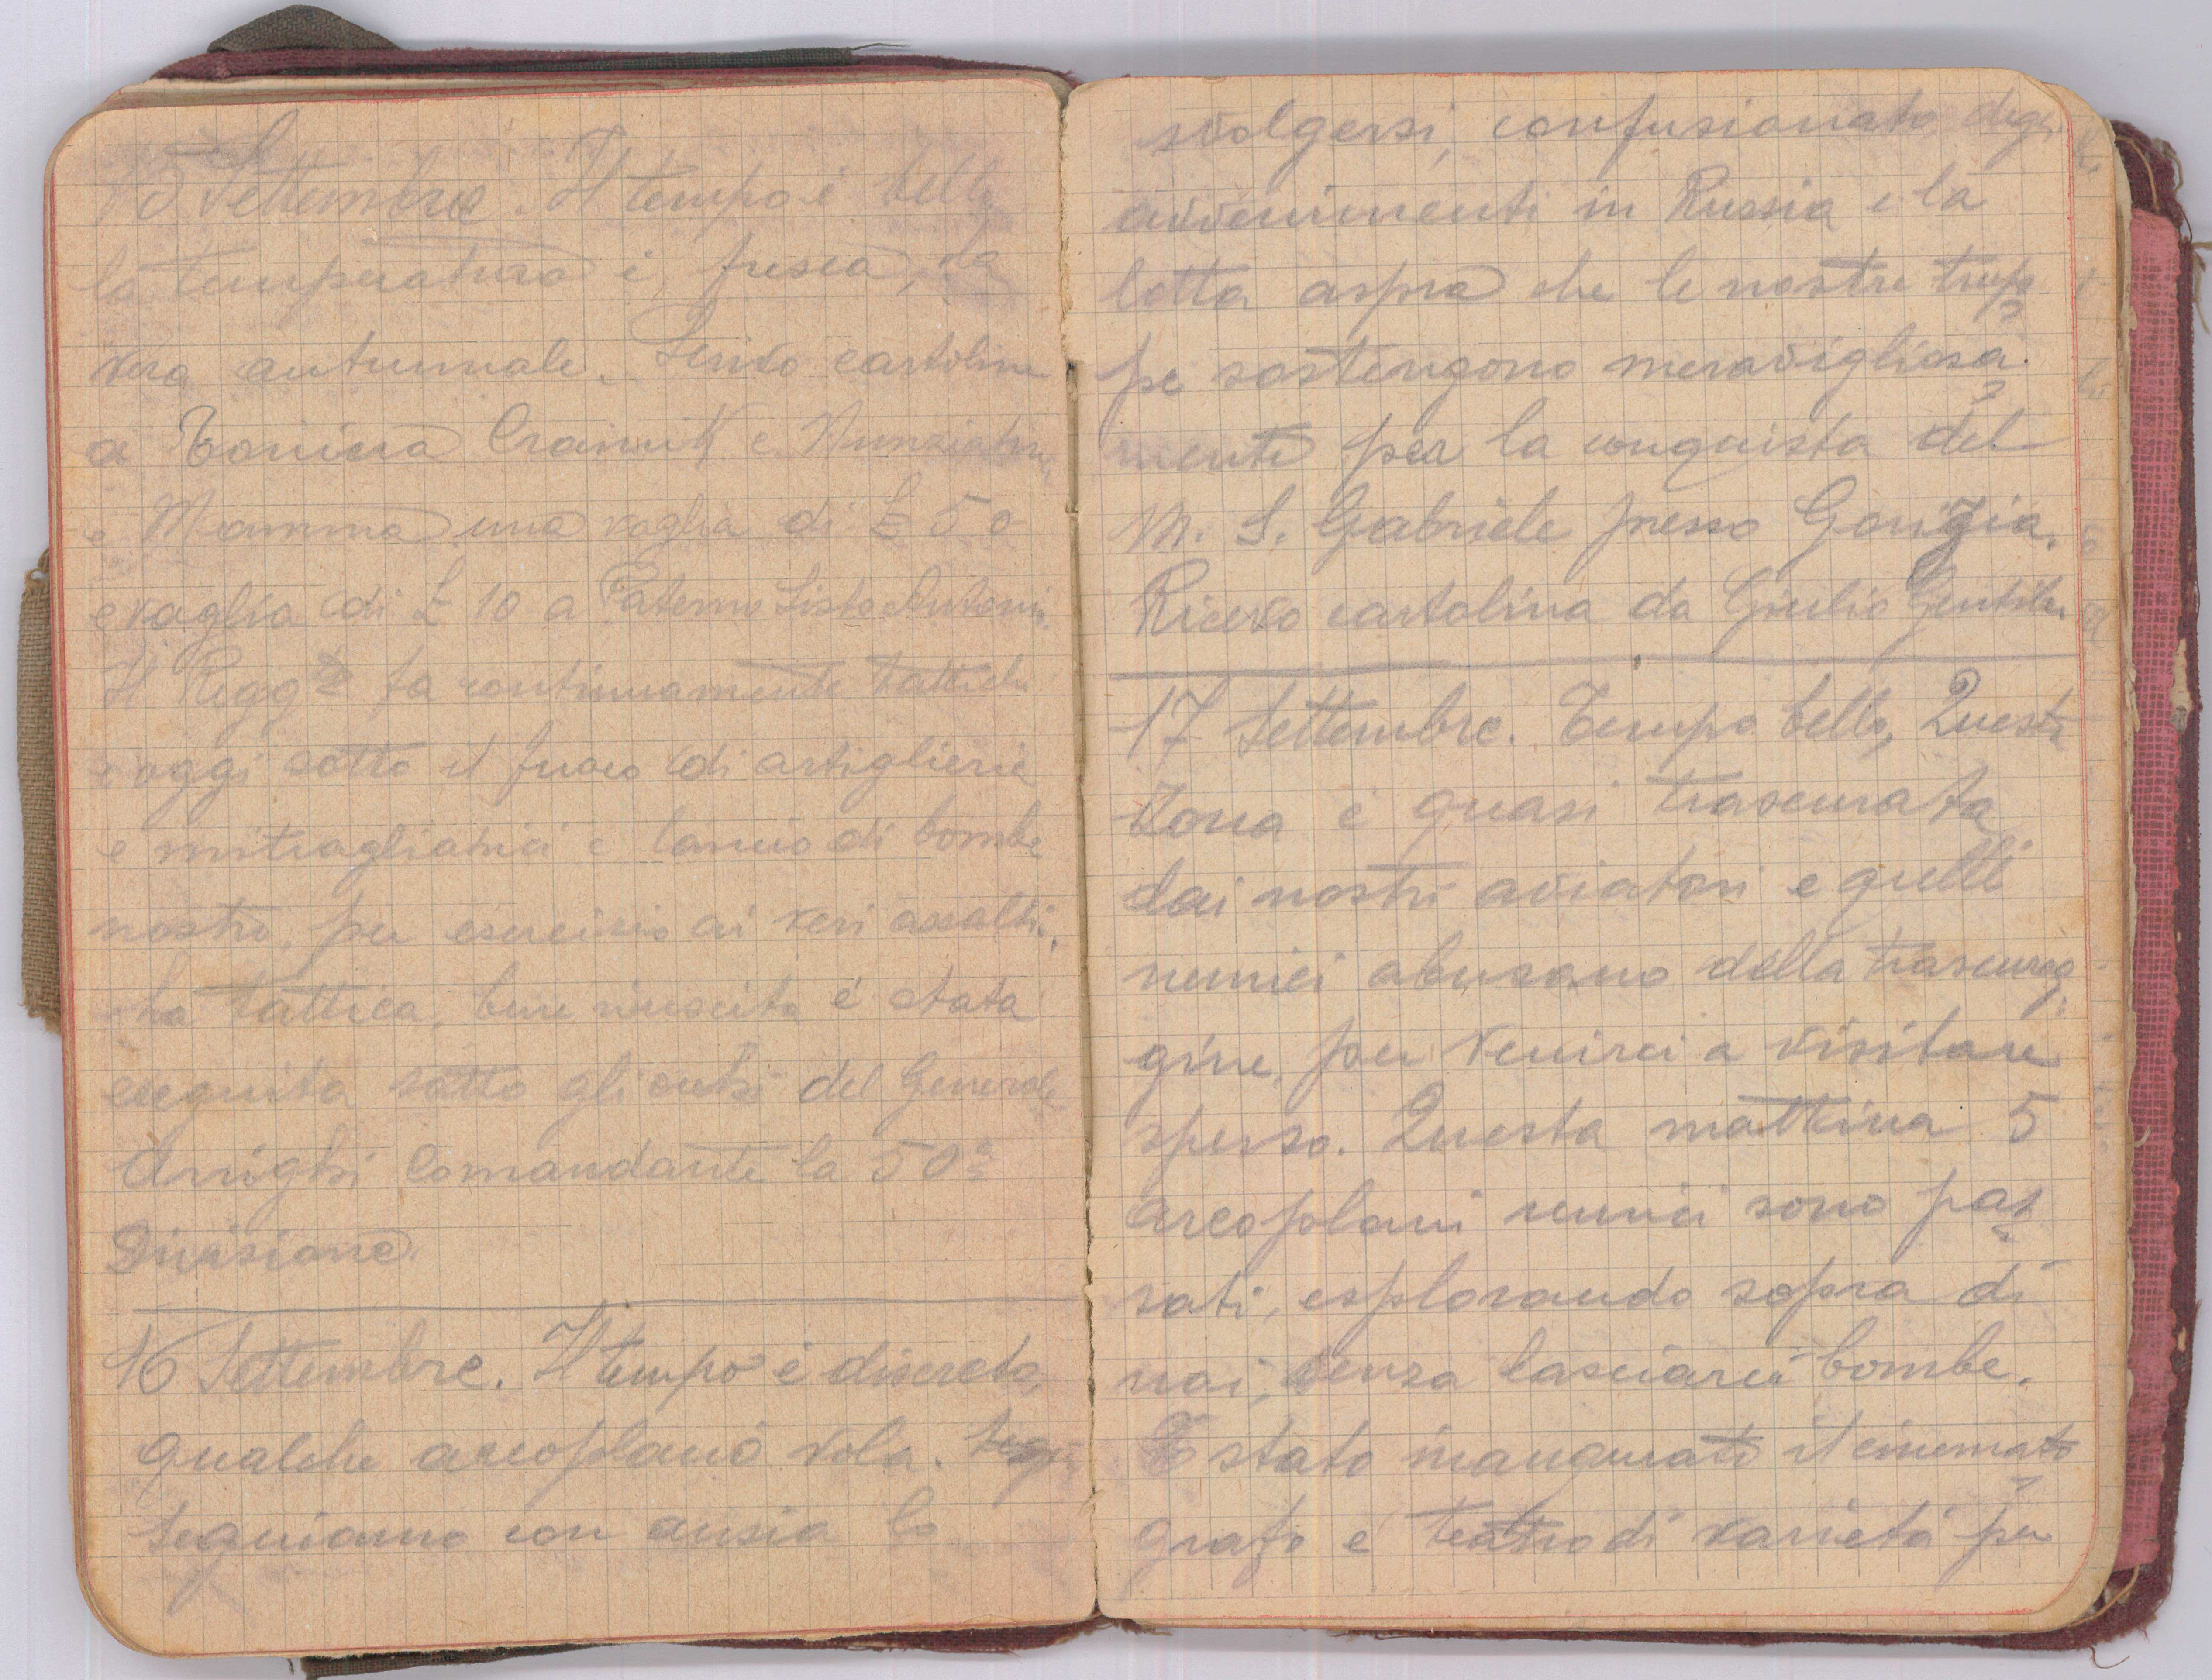 15 Settembre. Il tempo è bello
la temperatura è fresca, da
vera autunnale. Scrivo cartoline
a Tonina e Nunziatina
e Mamma una vaglia di £ 50
e vaglia di £ 10 a Paterno Sisto Antonio.
Il Regg.to fa continuamente tattiche
e oggi sotto il fuoco di artiglierie
e mitragliatrici e lancio di bombe
nostre, per esercizio ai veri assalti.
La tattica, bene riuscita è stata
eseguita sotto gli occhi del Generale
Arrighi Comandante la 50a
Divisione.
16 Settembre. Il tempo è discreto,
qualche areoplano vola.
Seguiamo con ansia lo
svolgersi, confusionato degli
avvenimenti in Russia e la
lotta aspra che le nostre trup=
pe sostengono meravigliosa=
mente per la conquista del
M. S. Gabriele presso Gorizia.
Ricevo cartolina da Giulio Gentile
17 Settembre. Tempo bello, Questa
Zona è quasi trascurata
dai nostri aviatori e quelli
nemici abusano della trascurag=
gine, per venirci a visitare
spesso. Questa mattina 5
areoplani nemici sono pas=
sati, esplorando sopra di
noi, senza lasciarci bombe.
È stato inaugurato il cinemato=
grafo e teatro di varietà per